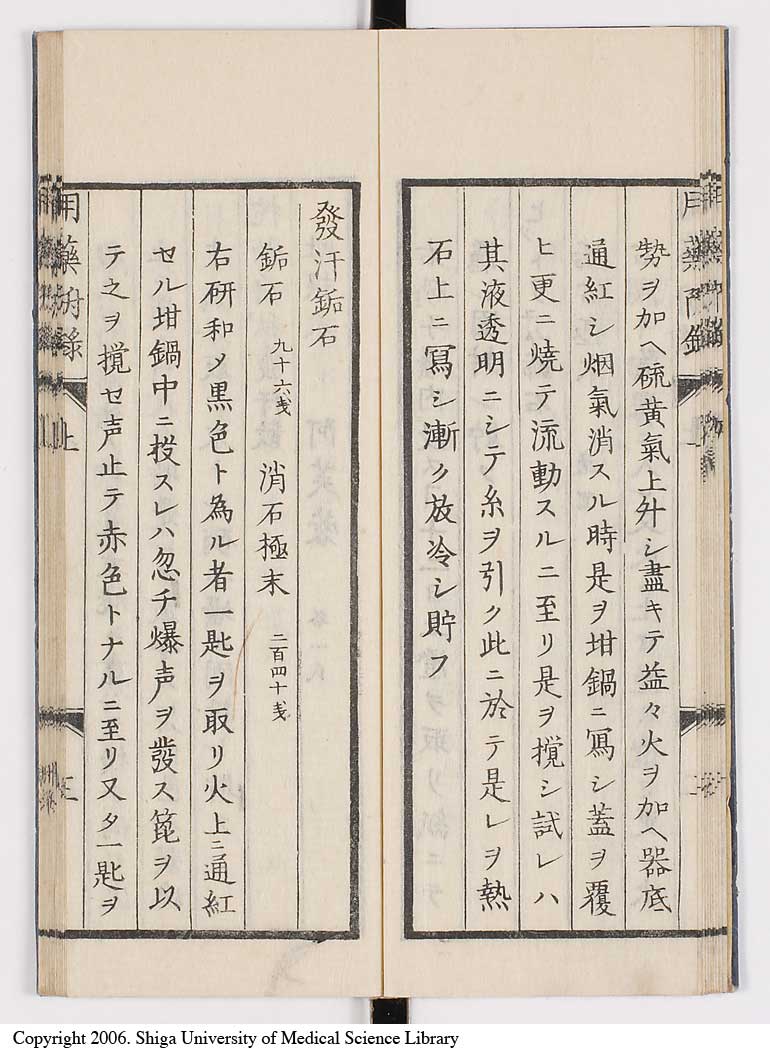 勢ヲ加ヘ硫黄氣上升シ盡キテ益々火ヲ加ヘ器底
通紅シ烟氣消スル時是ヲ坩鍋ニ冩シ蓋ヲ覆
ヒ更ニ焼テ流動スルニ至リ是ヲ攪シ試レハ
其液透明ニシテ糸ヲ引ク此ニ於テ是レヲ熱
石上ニ冩シ漸ク放冷シ貯フ
發汗鉐石
鉐石 九十六戔 消石極末 二百四十戔
右研和メ黒色ト為ル者一匙ヲ取リ火上ニ通紅
セル坩鍋中ニ投スレハ忽チ爆声ヲ發ス篦ヲ以
テ之ヲ攪セ声止テ赤色トナルニ至リ又タ一匙ヲ
上
Copyright 2006. Shiga University of Medical Science Library